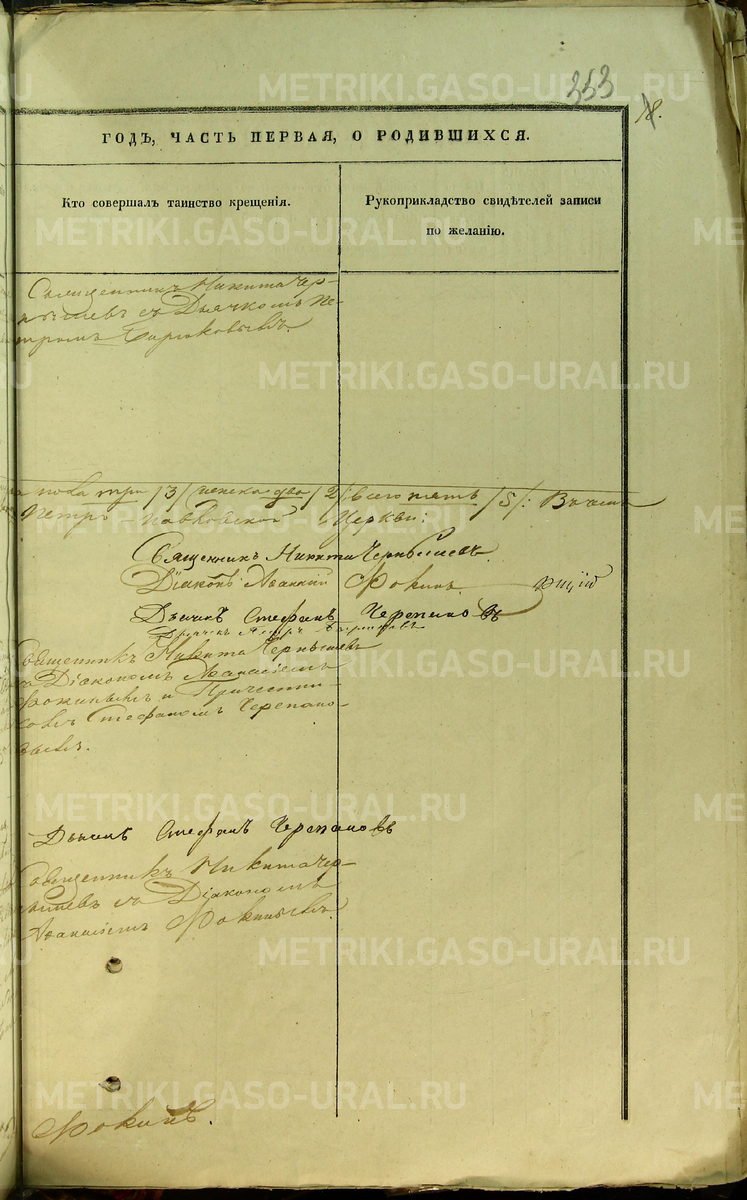 353
ГОДЪ, ЧАСТЬ ПЕРВАЯ, О РОДИВШИХСЯ.
Кто совершалъ таинство крещенія.
Рукоприкладство свидѣтелей записи
по желанію.
Священникъ Никита Чер-
нышевъ съ Дьячкомъ Пе-
тромъ
пола три /3/ женска два /2/ всего пять /5/:
Петро-Павловской Церкви:
Священникъ Никита Чернышевъ
Діаконъ Аѳанасій Фокинъ
Дьячекъ Стефанъ Черепановъ
Дьячекъ Петръ
Священникъ Никита Чернышевъ
съ Діакономъ Аѳанасіемъ
Фокинымъ и Причетни-
комъ Стефаномъ Черепано-
вымъ.
Дьячекъ Стефанъ Черепановъ
Священникъ Никита Чер-
нышевъ съ Діакономъ
Аѳанасіемъ Фокинымъ
Фокинъ.
METRIKI.GASO-URAL.RU